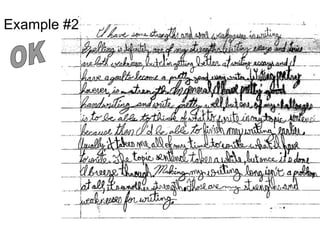 Example #2
OK
I have some strengths and some weaknesses in writing.
Spelling is definitely one of my strengths. Writing essays and
are both weaknesses, but I'm getting better at writing essays and I
have a goal to become a pretty good essay writer. Writing poetry
however, is a strength. In general, I have pretty good
handwriting and write pretty well, but one of my challenges
is to be able to think of what to write in my topic sentence
because then I'd be able to finish my writing earlier.
Usually it takes me all of my time to write what I'd have
to write. The topic sentence takes a while, but once it's done
A breeze through. Making my writing long isn't a problem
at all, it's another strength. Those are my strengths and
weaknesses for writing.